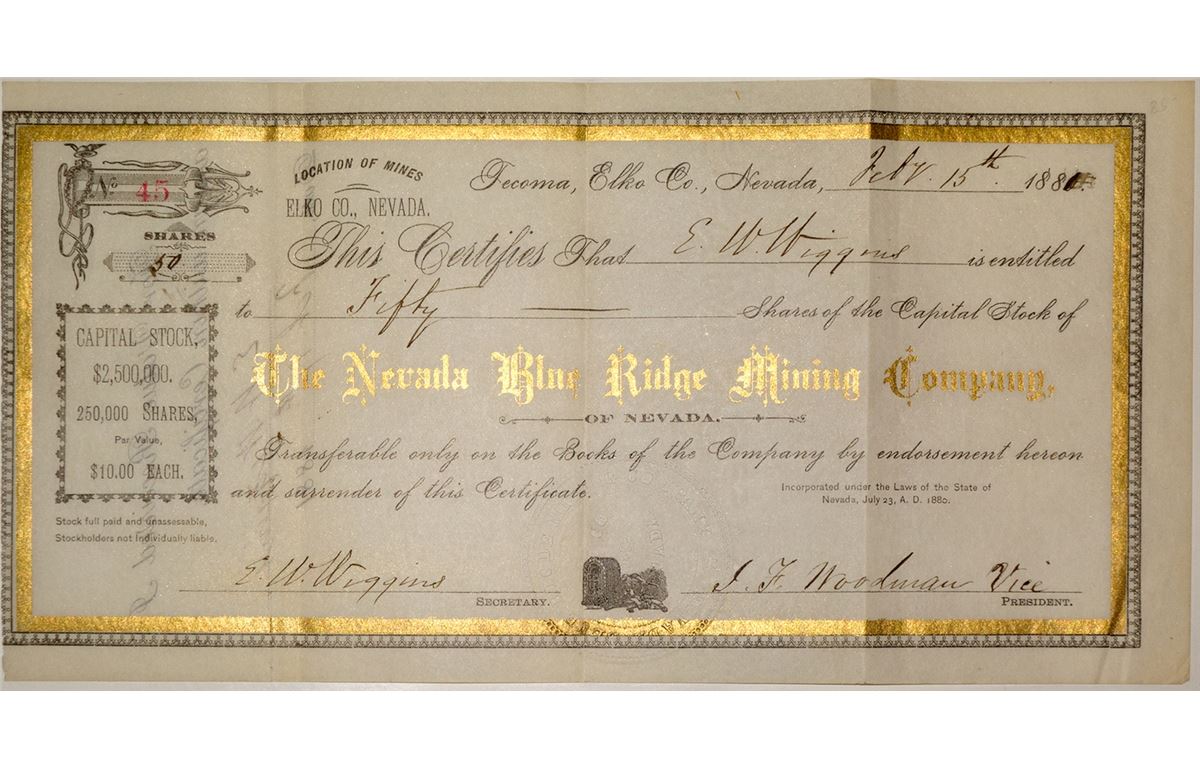 No 45
SHARES
50
LOCATION OF MINES
ELKO CO., NEVADA.
Tecoma, Elko Co., Nevada, Feby. 15th. 1881.
This Certifies That E. W. Wiggins is entitled
to Fifty Shares of the Capital Stock of
The Nevada Blue Ridge Mining Company,
OF NEVADA.
CAPITAL STOCK,
$2,500,000.
250,000 SHARES,
Par Value,
$10.00 EACH.
Transferable only on the Books of the Company by endorsement hereon
and surrender of this Certificate.
Incorporated under the Laws of the State of
Nevada, July 23, A. D. 1880.
Stock full paid and unassessable,
Stockholders not individually liable.
E. W. Wiggins
SECRETARY.
J. F. Woodman Vice
PRESIDENT.